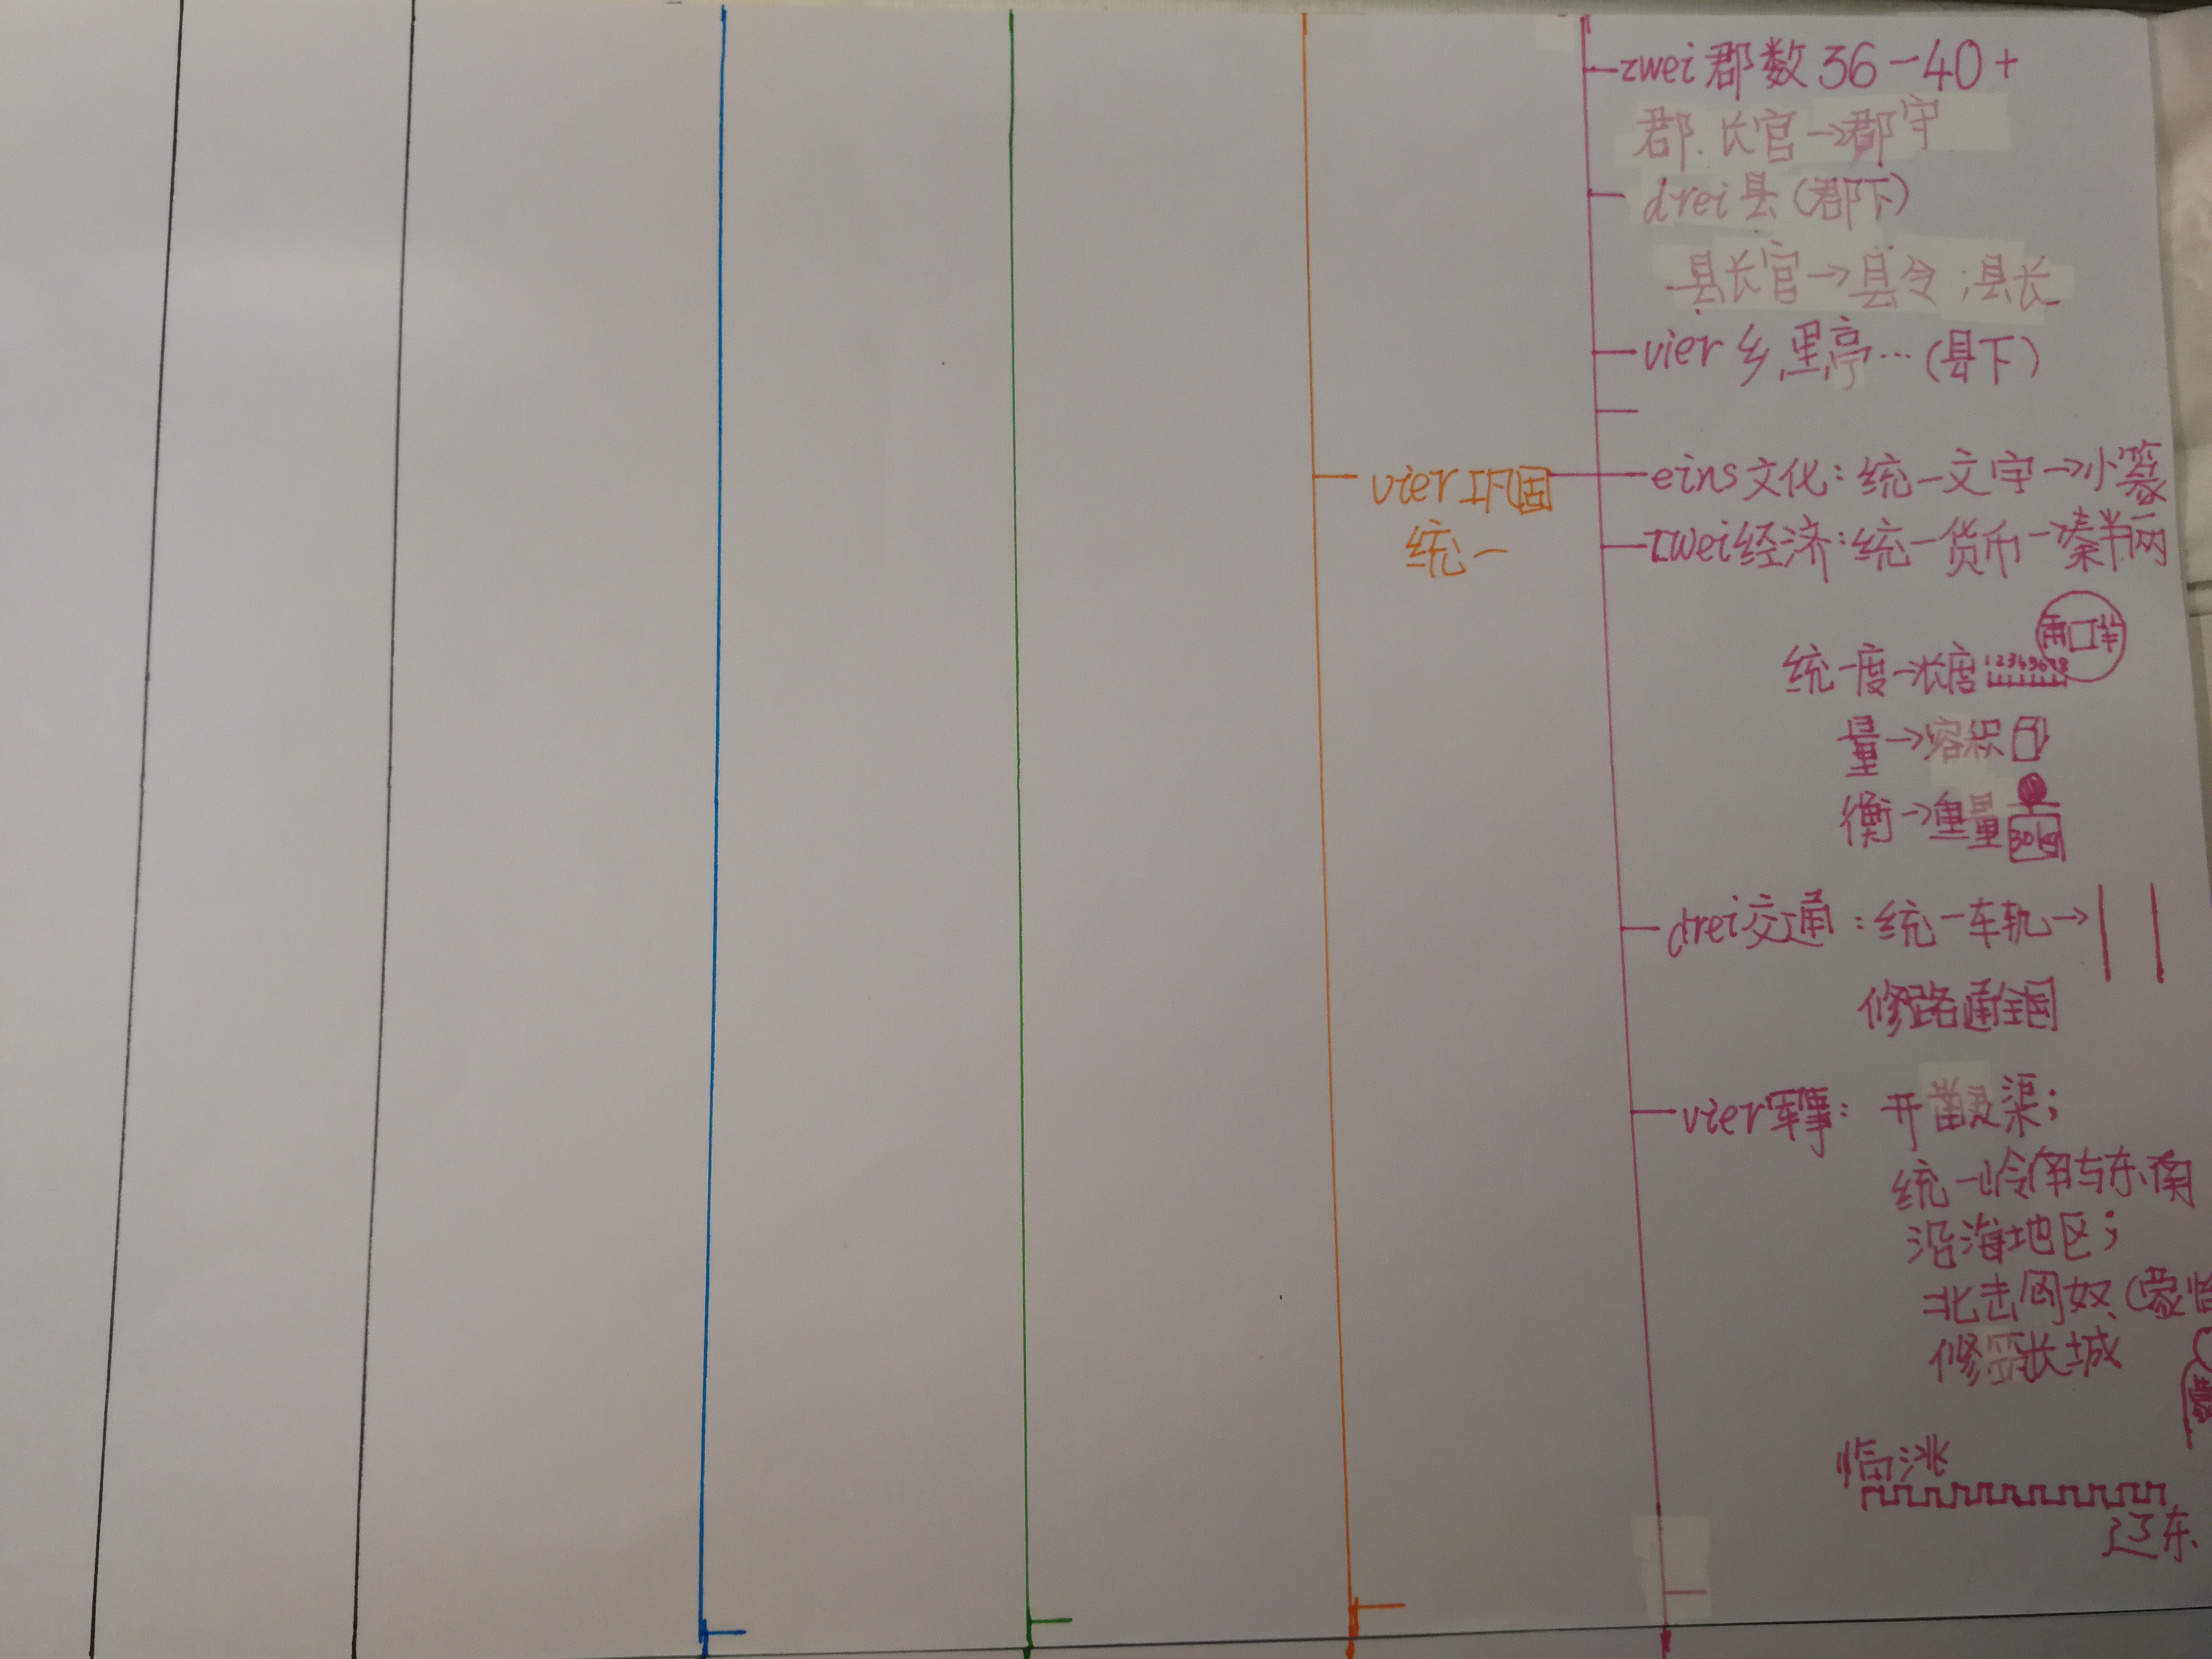 zwei 郡数 36-40+
郡.长官→郡守
drei 县(郡下)
县长官→县令;县长
vier 乡,里,亭…(县下)
vier 巩固
统一
eins 文化:统一文字→小篆
zwei 经济:统一货币→秦半两
两口半
统一度→长度 12345678
量→容积
衡→重量 30kg
drei 交通:统一车轨→
修路通全国
vier 军事: 开凿灵渠;
统一岭南与东南
沿海地区;
北击匈奴(蒙恬
修筑长城
临洮
辽东